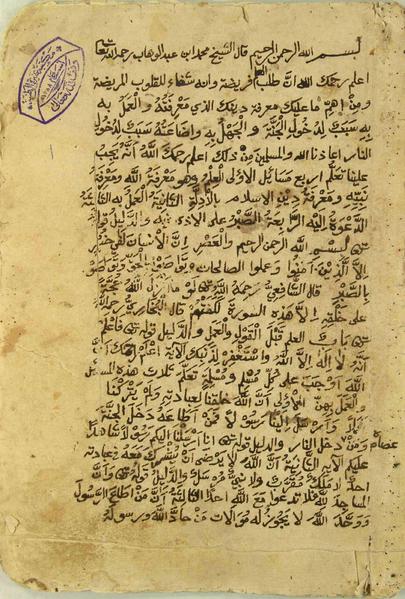 بسم الله الرحمن الرحيم قال الشيخ محمد ابن عبد الوهاب رحمه الله تعا
اعلم رحمك الله ان طلب العلم فريضة وانه شفاء للقلوب المريضة
ومن اهم ما عليك معرفة دينك الذي معرفته والعمل به
به سبب لدخول الجنة والجهل به واضاعته سبب لدخول
النار اعاذنا الله والمسلمين من ذلك اعلم رحمك الله أنه يجب
علينا تعلم اربع مسائل الاولى العلم وهو معرفة الله ومعرفة
نبيه ومعرفة دين الاسلام بالأدلة الثانية العمل به الثالثة
الدعوة اليه الرابعة الصبر على الاذى فيه والدليل قوله
تعى بسم الله الرحمن الرحيم والعصر ان الانسان لفي خسر
الا الذين آمنوا وعملوا الصالحات وتواصوا بالحق وتواصوا
بالصبر قال الشافعي رحمه الله تعى لو ما انزل الله حجة
على خلقه الا هذه السورة لكفتهم قال البخاري رحمه الله
تعى باب العلم قبل القول والعمل والدليل قوله تعى فاعلم
أنه لا اله الا الله واستغفر لذنبك الآية اعلم رحمك الله ان
الله اوجب على كل مسلم ومسلمة تعلم ثلاث هذه المسائل
والعمل بهن الاولى أن الله خلقنا لعبادته ولم يتركنا
هملا وارسل الينا رسولا فمن اطاعه دخل الجنة
ومن عصاه دخل النار والدليل قوله تعى انا ارسلنا اليكم رسولا شاهدا
عليكم الآيه الثانية أن الله لا يرضى أن يشرك معه في عبادته
احدا لا ملك مقرب ولا نبي مرسل والدليل قوله تعى وأن
المساجد لله فلا تدعوا مع الله احدا الثالثة أن من اطاع الرسول
ووحد الله لا يجوز له موالات من حاد الله ورسوله